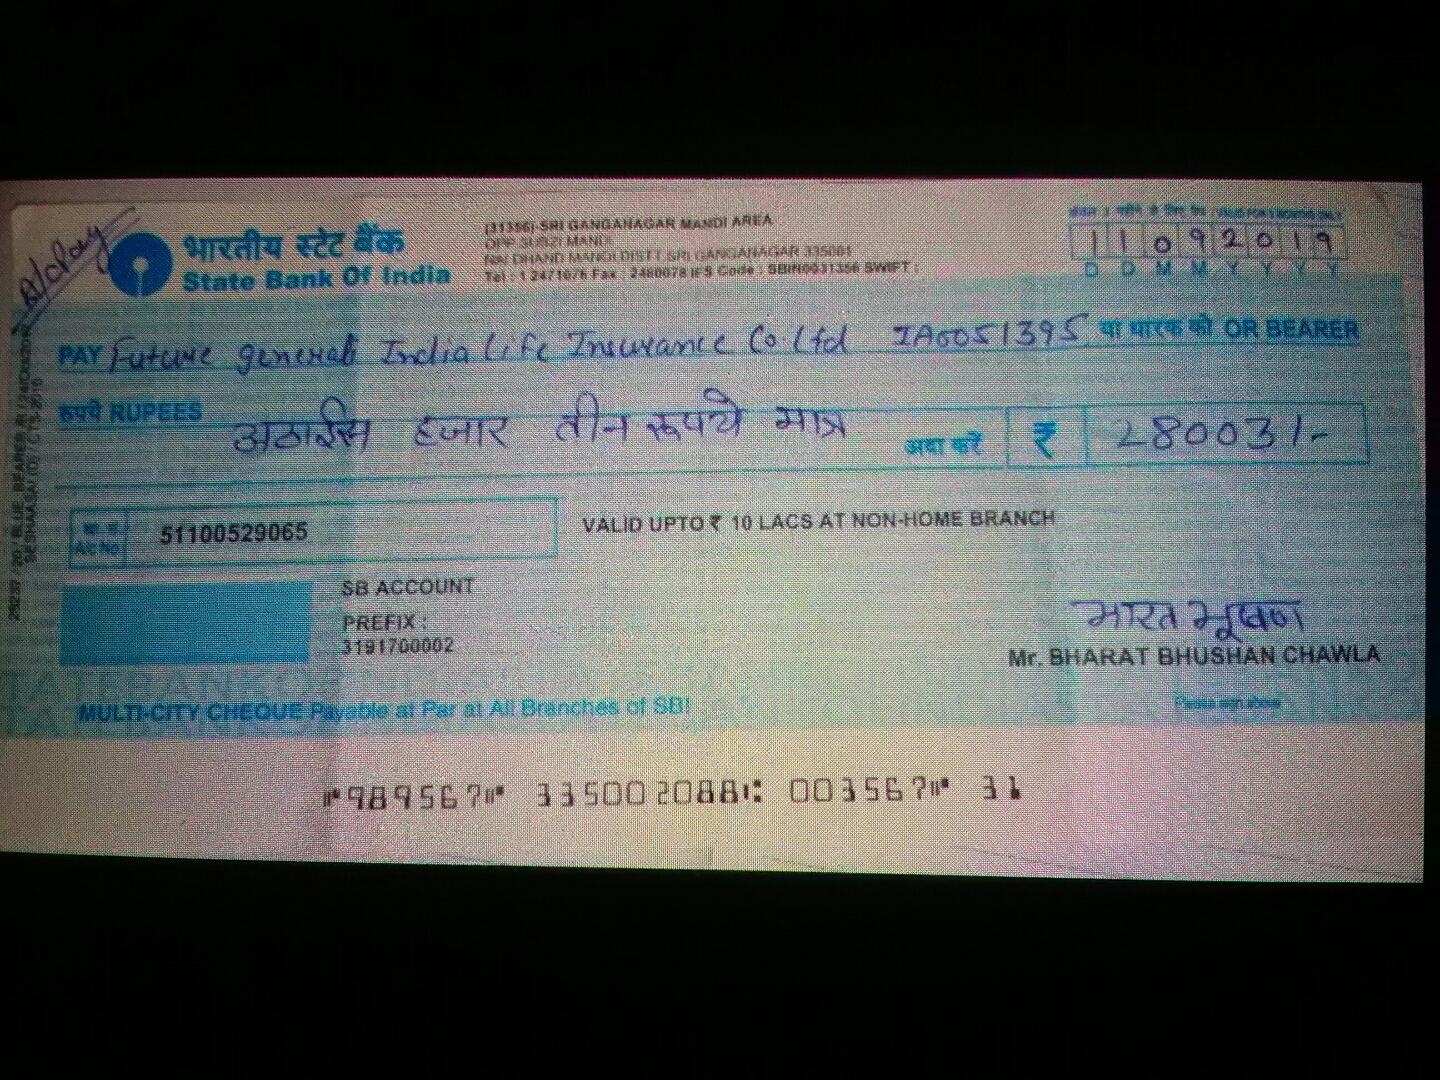 A/c Pay
भारतीय स्टेट बैंक
State Bank Of India
(31356)-SRI GANGANAGAR MANDI AREA
OPP SUBZI MANDI
NAI DHAND MANDI, DISTT SRI GANGANAGAR 335001
Tel : 1 2471076 Fax : 2480078 IFS Code : SBIN0031356 SWIFT :
VALID FOR 3 MONTHS ONLY
11092019
D D M M Y Y Y Y
PAY Future generali India Life Insurance Co Ltd IA0051395 या धारक को OR BEARER
रुपये RUPEES अठाईस हजार तीन रूपये मात्र अदा करें ₹ 28003/-
A/c No. 51100529065
VALID UPTO ₹ 10 LACS AT NON-HOME BRANCH
SB ACCOUNT
PREFIX :
3191700002
भारत भूषण
Mr. BHARAT BHUSHAN CHAWLA
Please sign above
MULTI-CITY CHEQUE Payable at Par at All Branches of SBI
⑈989567⑈ 335002088⑆ 003567⑈ 31